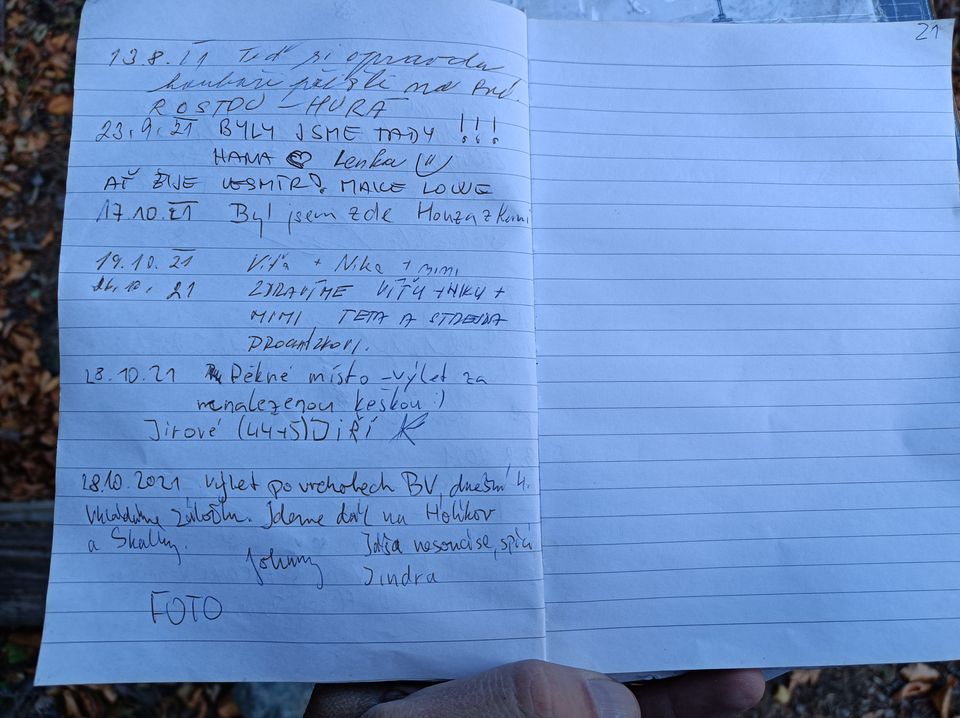 21
13.8.21 Teď si opravdu
houbaři
ROSTOU - HURÁ
23.9.21 BYLY JSME TADY !!!
HANA Lenka
AŤ ŽIJE VESMÍR! MAKE LOWE
17.10.21 Byl jsem zde Honza z
19.10.21 Víťa + Nika + mimi
26.10.21 ZDRAVÍME VÍŤU + NIKU +
MIMI, TETA A STREJDA
PROCHÁZKOVI.
28.10.21 Pěkné místo - výlet za
nenalezenou keškou :)
Jírové (44+5) JIŘÍ
28.10.2021 výlet po vrcholech BV, dnešní 4.
vkládáme záložku. Jdeme dál na Holíkov
a Skalky. Johnny
Jindra
FOTO